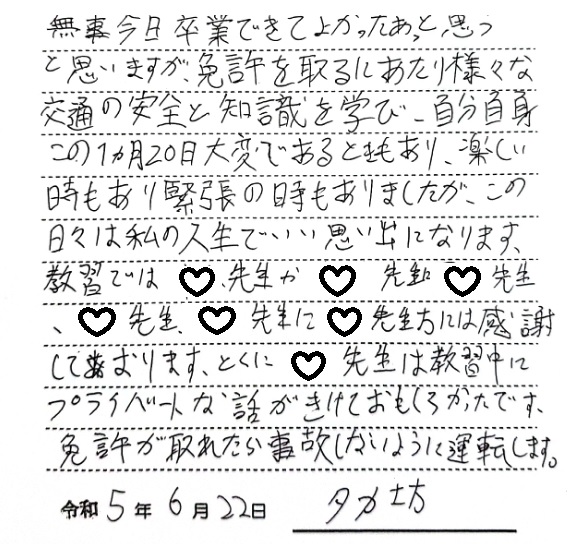 無事今日卒業できてよかったあっと思う
と思いますが、免許を取るにあたり様々な
交通の安全と知識を学び、自分自身
この1ヵ月20日大変であるときもあり、楽しい
時もあり緊張の時もありましたが、この
日々は私の人生でいい思い出になります、
教習では♡先生か♡先生に♡先生
、♡先生、♡先生に♡先生方には感謝
しております、とくに♡先生は教習中に
プライベートな話がきけておもしろかったです、
免許が取れたら事故しないように運転します。
令和5年6月22日 タカ坊